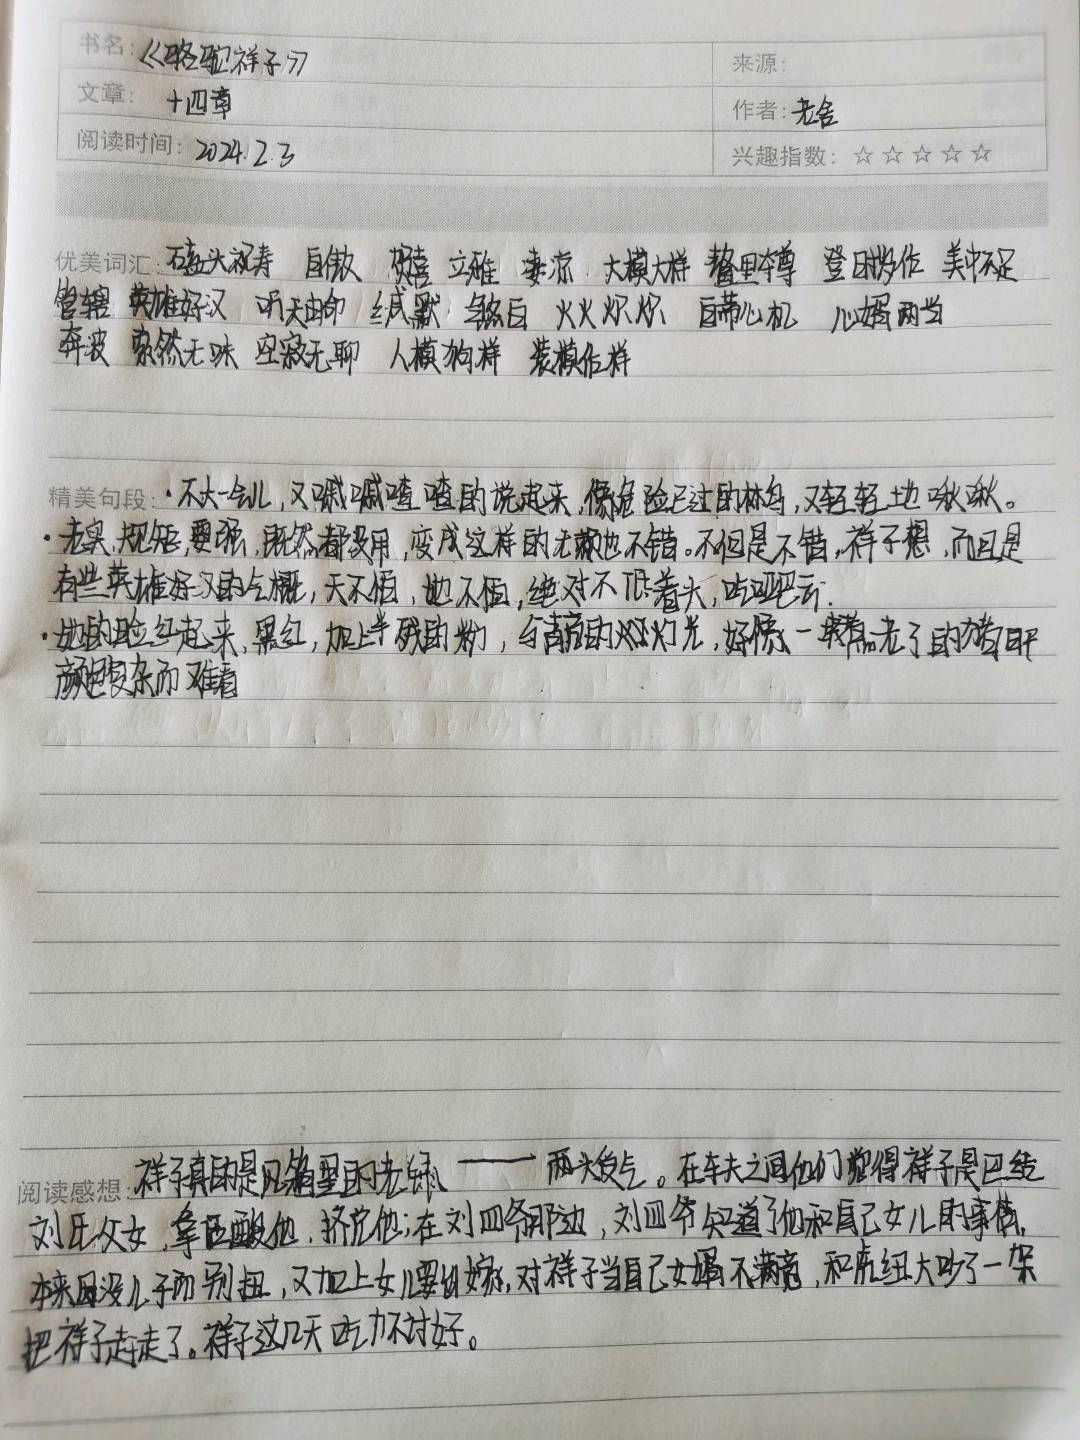 书名：《骆驼祥子》
来源：
文章：十四章
作者：老舍
阅读时间：2024.2.3
兴趣指数：☆☆☆☆☆
优美词汇：磕头祝寿 自傲 贺喜 立雅 凄凉 大模大样 整里奉尊 美中不足
管辖 英雄好汉 听天由命 缄默 火火炽炽 自带心机 心满两当
奔波 索然无味 空寂无聊 人模狗样 装模作样
精美句段：·不大一会儿，又喊喊喳喳的说起来，像危险已过的林鸟，又轻轻地啾啾。
·老实，规矩，要强，既然都没用，变成这样的无赖也不错。不但是不错，祥子想，而且是
有些英雄好汉的气概，天不怕，地不怕，绝对不低着头，吃哑吧亏.
·她的脸红起来，黑红，加上半残的粉，与青亮的灯光，好像一块煮老了的猪肝
颜色复杂而难看
祥子真的是风箱里的老鼠——两头受气。在车夫之间他们觉得祥子是巴结
阅读感想：
刘氏父女，拿话酸他，挤兑他；在刘四爷那边，刘四爷知道了他和自己女儿的事情，
本来因没儿子而别扭，又加上女儿要出嫁，对祥子当自己女婿不满意，和虎妞大吵了一架
把祥子赶走了。祥子这几天吃力不讨好。